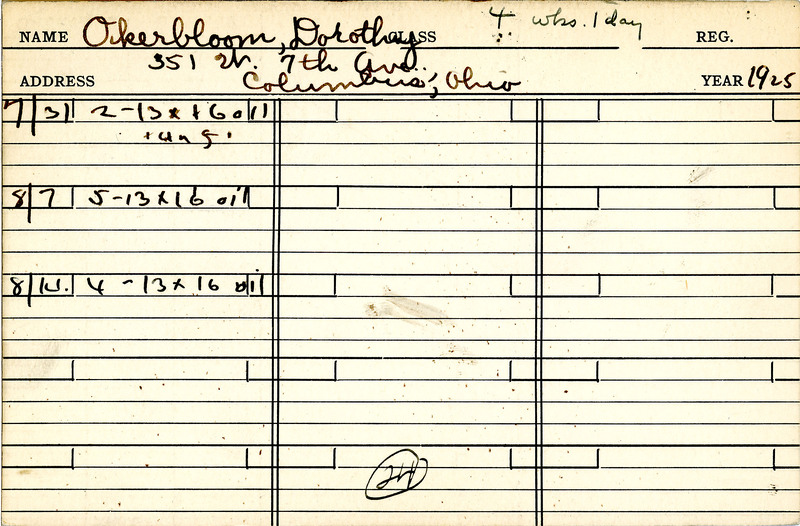 NAME Okerbloom, Dorothy CLASS 4 wks. 1 day REG.
351 W. 7th Ave.
ADDRESS Columbus, Ohio YEAR 1925
7/31 2-13x16 oil
8/7 5-13x16 oil
8/14. 4-13x16 oil